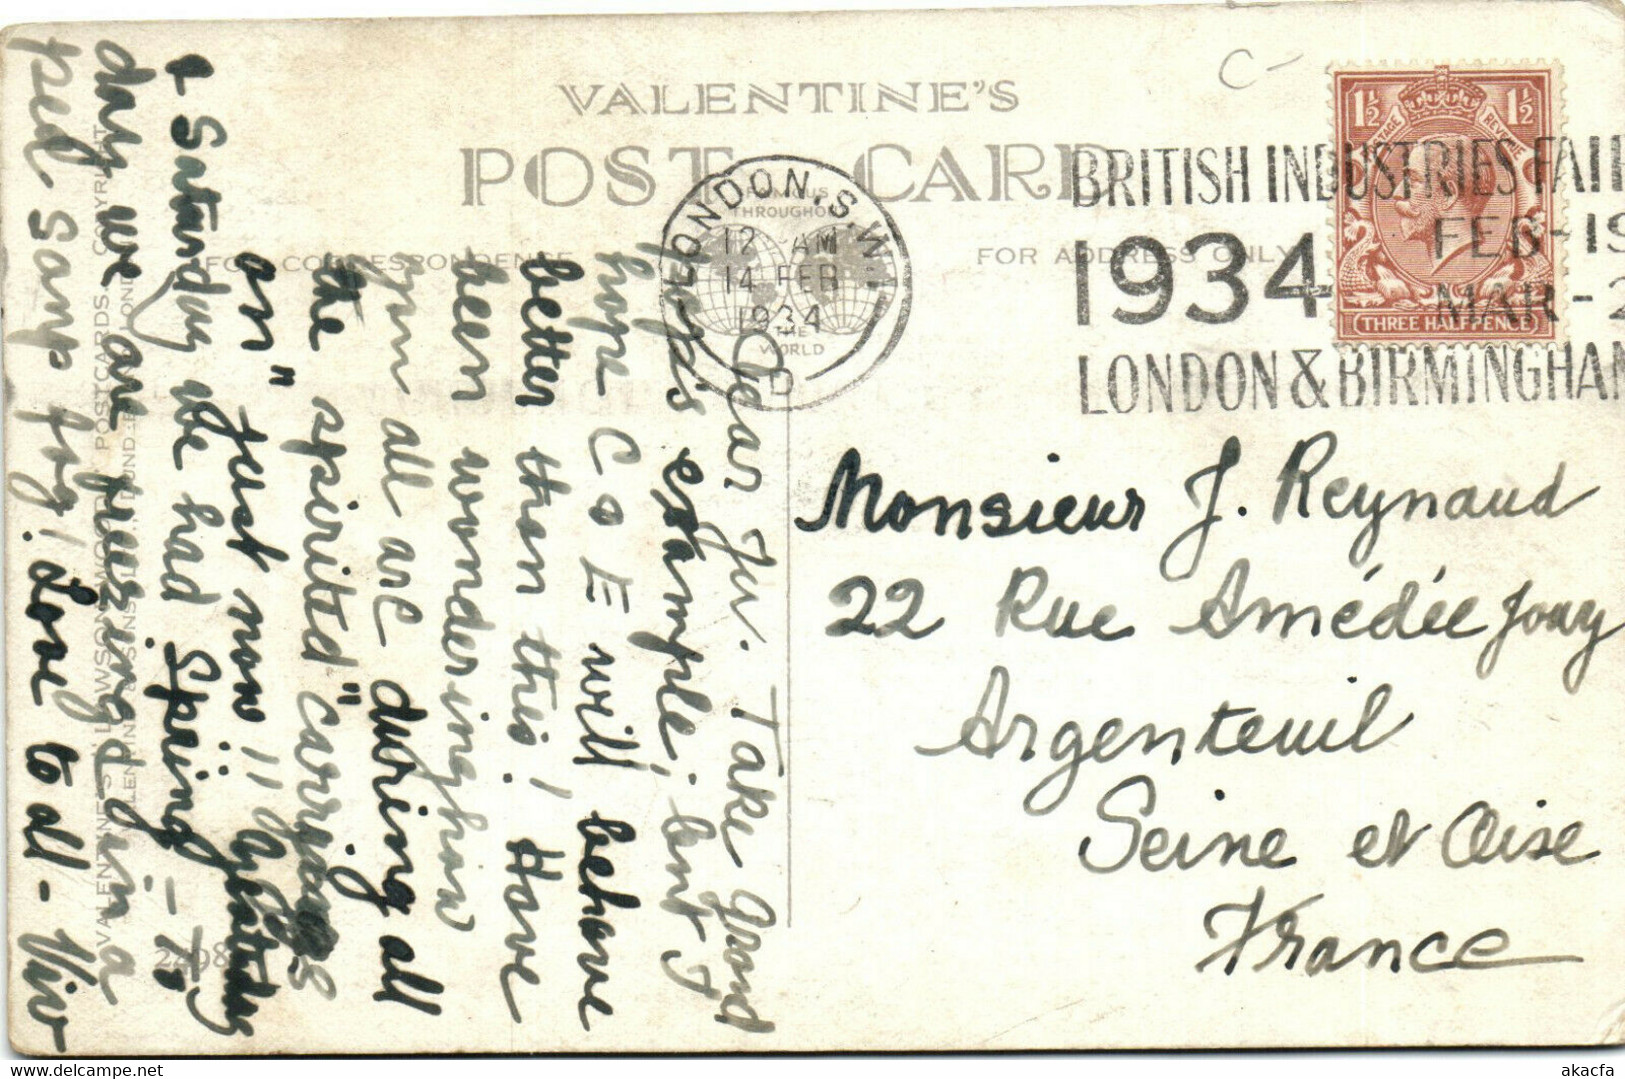 VALENTINE'S
POST CARD
FAMOUS
THROUGHOUT
THE
WORLD
FOR CORRESPONDENCE
FOR ADDRESS ONLY
C-
LONDON, S.W.1
12 AM
14 FEB
1934
D
BRITISH INDUSTRIES FAIR
1934
FEB-19
MAR-2
LONDON & BIRMINGHAM
1½ 1½
POSTAGE REVENUE
THREE HALFPENCE
Monsieur J. Reynaud
22 Rue Amédée Jouy
Argenteuil
Seine et Oise
France
Dear Ju. Take Grand
example; but I
hope C & E will behave
better than this! Have
been wondering how
you all are during all
the "spirited carryings
on" just now!!
Saturday we had Spring -
day we are in a
Love to all - Viv
VALENTINE'S POSTCARDS. COPYRIGHT
VALENTINE & SONS LTD., DUNDEE AND LONDON
2498
akacfa